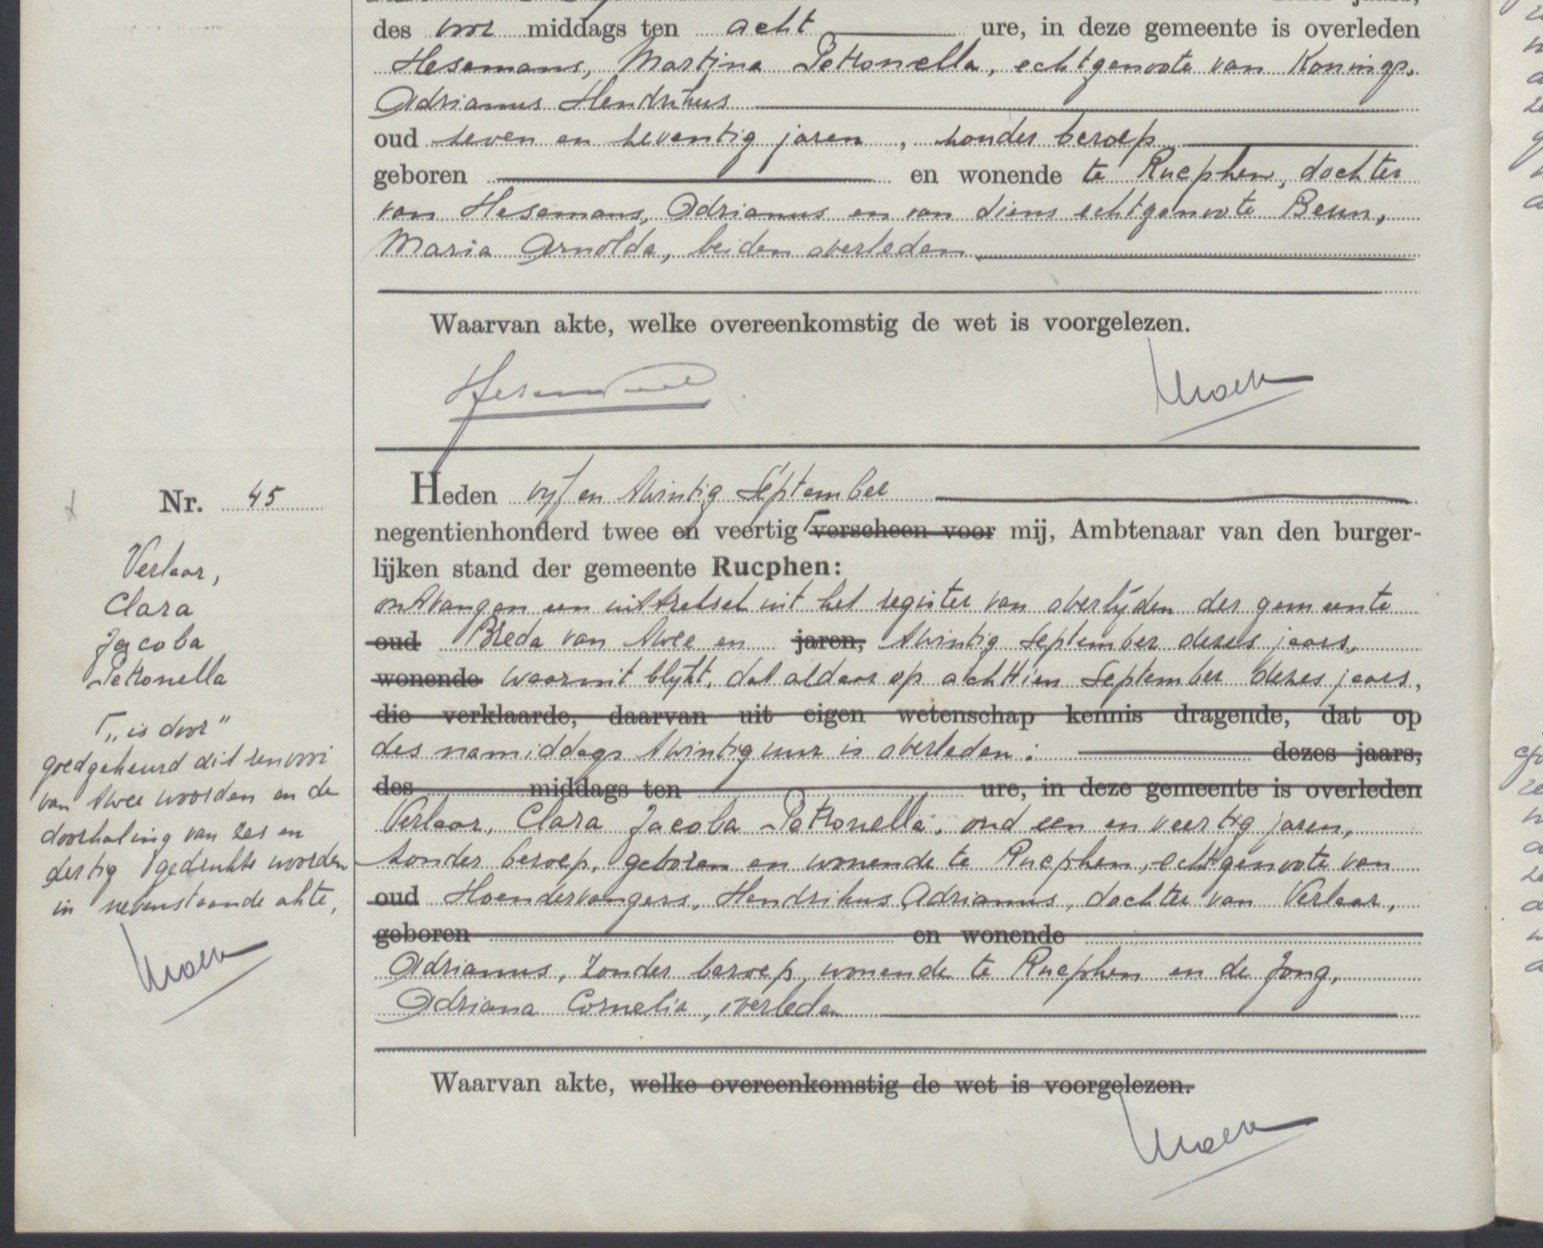 des voor middags ten acht ure, in deze gemeente is overleden
Hesemans, Martina Petronella, echtgenoote van Konings,
Adrianus Hendrikus
oud zeven en zeventig jaren, zonder beroep
geboren en wonende te Rucphen, dochter
van Hesemans, Adrianus en van diens echtgenoote Beun,
Maria Arnolda, beiden overleden.
Waarvan akte, welke overeenkomstig de wet is voorgelezen.
Nr. 45
Verlaar,
Clara
Jacoba
Petronella
Γ „is door"
goedgekeurd dit renvooi
van twee woorden en de
doorhaling van zes en
dertig gedrukte woorden
in nevenstaande akte,
Heden vyf en twintig September
negentienhonderd twee en veertig Γ verscheen voor mij, Ambtenaar van den burger-
lijken stand der gemeente Rucphen:
ontvangen een uittreksel uit het register van overlijden der gemeente
oud Breda van twee en jaren, twintig September dezes jaars,
wonende waaruit blykt, dat aldaar op achttien September dezes jaars,
die verklaarde, daarvan uit eigen wetenschap kennis dragende, dat op
des namiddags twintig uur is overleden: dezes jaars,
des middags ten ure, in deze gemeente is overleden
Verlaar, Clara Jacoba Petronella, oud een en veertig jaren,
zonder beroep, geboren en wonende te Rucphen, echtgenoote van
oud Hoendervangers, Hendrikus Adrianus, dochter van Verlaar,
geboren en wonende
Adrianus, zonder beroep, wonende te Rucphen en de Jong,
Adriana Cornelia, overleden
Waarvan akte, welke overeenkomstig de wet is voorgelezen.